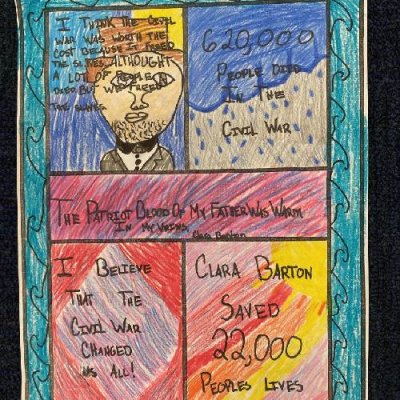 I THINK THE CIVIL
WAR WAS WORTH THE
COST BECAUSE IT FREED
THE SLAVES. ALTHOUGHT
A LOT OF PEOPLE
DIED BUT WE FREED
THE SLAVES
620,000
PEOPLE DIED
IN THE
CIVIL WAR
THE PATRIOT BLOOD OF MY FATHER WAS WARM
IN MY VEINS. Clara Barton
I BELIEVE
THAT THE
CIVIL WAR
CHANGED
US ALL!
CLARA BARTON
SAVED
22,000
PEOPLES LIVES